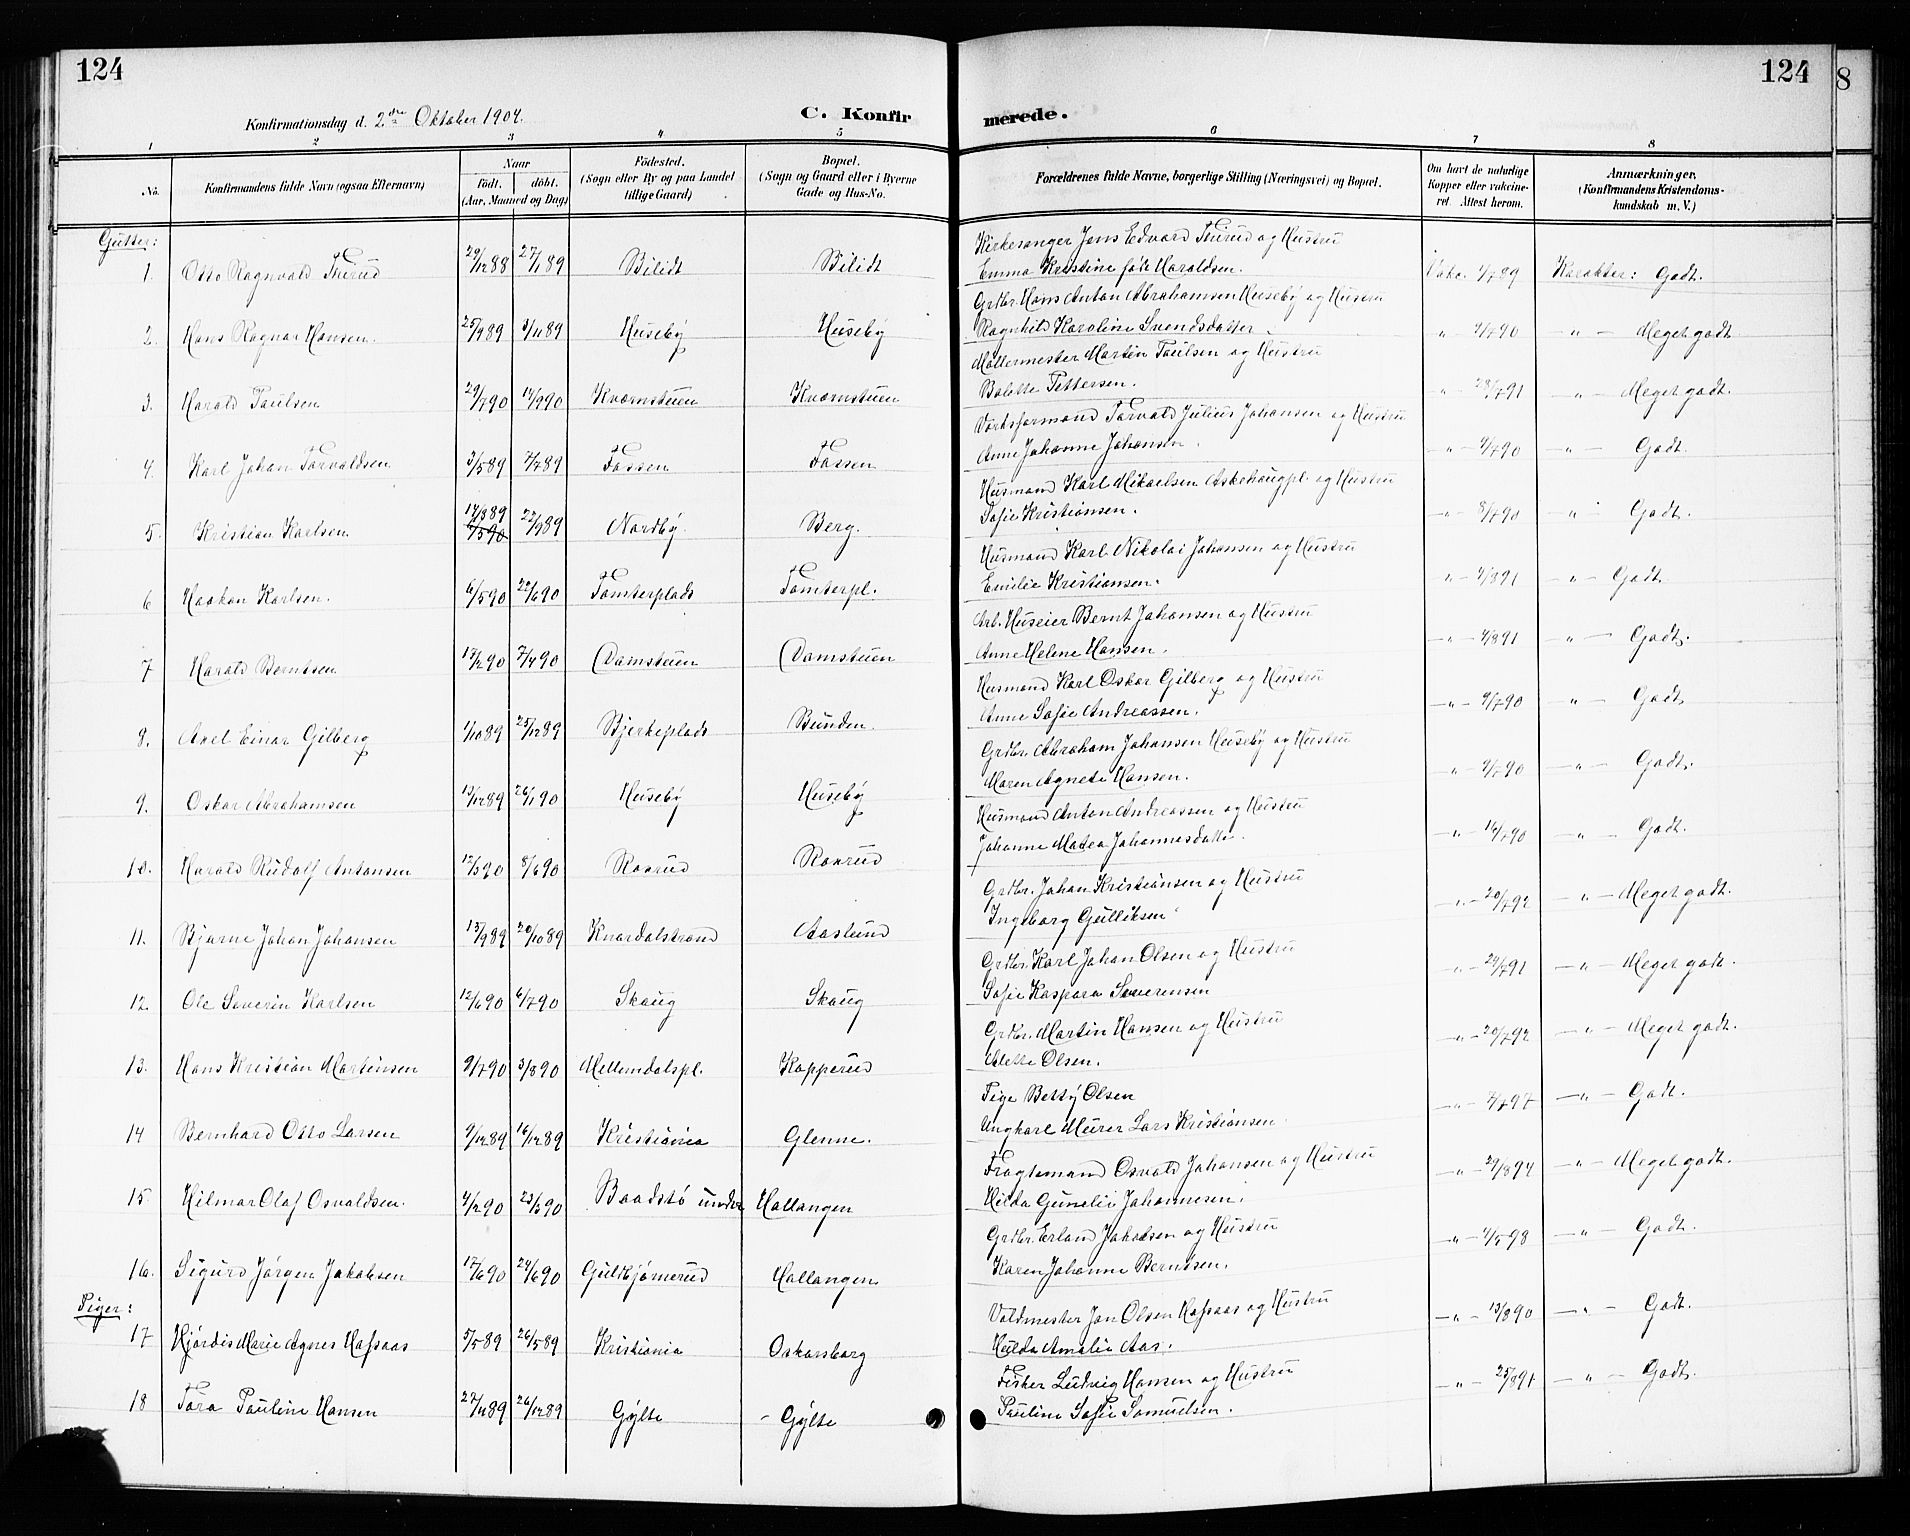 124
124
8
Konfirmationsdag d. 2den Oktober 1904.
C. Konfir
merede.
1 2 3 4 5 6 7 8
No.
Konfirmandens fulde Navn (ogsaa Efternavn)
Naar
födt. döbt.
(Aar, Maaned og Dag)
Födested.
(Sogn eller By og paa Landet
tillige Gaard)
Bopæl.
(Sogn og Gaard eller i Byerne
Gade og Hus-No.
Forældrenes fulde Navne, borgerlige Stilling (Næringsvei) og Bopæl.
Om havt de naturlige
Kopper eller vakcine-
ret. Attest herom.
Anmærkninger.
(Konfirmandens Kristendoms-
kundskab m. V.)
Gutter:
Kirkesanger Jens Edvard Thirud og Hustru
1. Otto Ragnvald Thirud 29/12 88 27/1 89 Bilidt Bilidt Emma Kristine föd Haraldsen. Vakc. 4/7 89 Karakter: Godt.
Grdbr. Hans Anton Abrahamsen Huseby og Hustru
2. Hans Ragnar Hansen. 25/9 89 3/11 89 Huseby Huseby Ragnhild Karoline Svendsdatter. " 9/7 90 " — Meget godt.
Möllermester Martin Paulsen og Hustru
3. Harald Paulsen 29/7 90 14/9 90 Kvernstuen Kvernstuen Bolette Pettersen. " — 28/7 91 " — Meget godt.
Verksformand Torvald Julius Johansen og Hustru
4. Karl Johan Torvaldsen 3/5 89 7/7 89 Fossen Fossen Anne Johanne Johansen. " — 9/7 90 " — Godt.
Husmand Karl Mikaelsen Askehaugpl. og Hustru
5. Kristian Karlsen 17/8 89 6/5 90 22/9 89 Nordby. Berg. Sofie Kristiansen. — " — 8/7 90 " — Godt.
Husmand Karl Nikolai Johansen og Hustru
6 Haakon Karlsen. 6/5 90 22/6 90 Tomterplads Tomterpl. Emilie Kristiansen. " — 4/8 91 " — Godt.
Arb. Huseier Bernt Johansen og Hustru
7 Harald Berntsen 17/2 90 7/4 90 Damstuen Damstuen Anne Helene Hansen. — " — 4/8 91 " — Godt.
Husmand Karl Oskar Gilberg og Hustru
8. Axel Einar Gilberg 1/10 89 25/12 89 Bjerkeplads Bunden. Anne Sofie Andreassen. — " — 9/7 90 " — Godt.
Grdbr. Abraham Johansen Huseby og Hustru
9. Oskar Abrahamsen 13/12 89 26/1 90 Huseby Huseby Maren Agnete Hansen. — " — 9/7 90 — " — Godt.
Husmand Anton Andreassen og Hustru
10. Harald Rudolf Antonsen 12/3 90 8/6 90 Roxrud Roxrud Johanne Matea Johannesdatter. — " — 16/7 90 — " — Godt.
Grdbr. Johan Kristiansen og Hustru
11. Bjarne Johan Johansen 15/9 89 20/10 89 Knardalstrand Aaslund Ingeborg Gulliksen. — " — 20/7 92 — " — Meget godt.
Grdbr. Karl Johan Olsen og Hustru
12. Ole Severin Karlsen 12/6 90 6/7 90 Skaug Skaug Sofie Kaspara Severensen — " — 29/7 91 — " — Meget godt.
Grdbr. Martin Hansen og Hustru
13. Hans Kristian Martinsen 9/7 90 3/8 90 Mellemdalspl. Kopperud Alette Olsen. — " — 20/7 92 — " — Meget godt.
Pige Betty Olsen
14 Bernhard Otto Larsen 9/12 89 16/12 89 Kristiania Glenne. Ungkarl Murer Lars Kristiansen. — " — 7/7 97 — " — Godt.
Fragtemand Osvald Johansen og Hustru
15 Hilmar Olaf Osvaldsen. 4/2 90 23/3 90 Baadstö under Hallangen Hilda Gunelie Johannesen. — " — 29/8 94 — " — Meget godt.
Grdbr. Erland Jakobsen og Hustru
16. Sigurd Jörgen Jakobsen 17/6 90 29/6 90 Guldbjörnerud Hallangen Karen Johanne Berntsen. — " — 4/5 98 — " — Godt.
Piger:
Voldmester Jon Olsen Hafsaas og Hustru
17 Hjördis Marie Agnes Hafsaas 5/5 89 26/5 89 Kristiania Oskarsborg Hulda Amalie Aas. — " — 13/8 90 — " — Godt.
Fisker Ludvig Hansen og Hustru
18 Tora Pauline Hansen 27/11 89 26/12 89 Gylte — Gylte Pauline Sofie Samuelsen. — " — 25/8 91 — " — Godt.